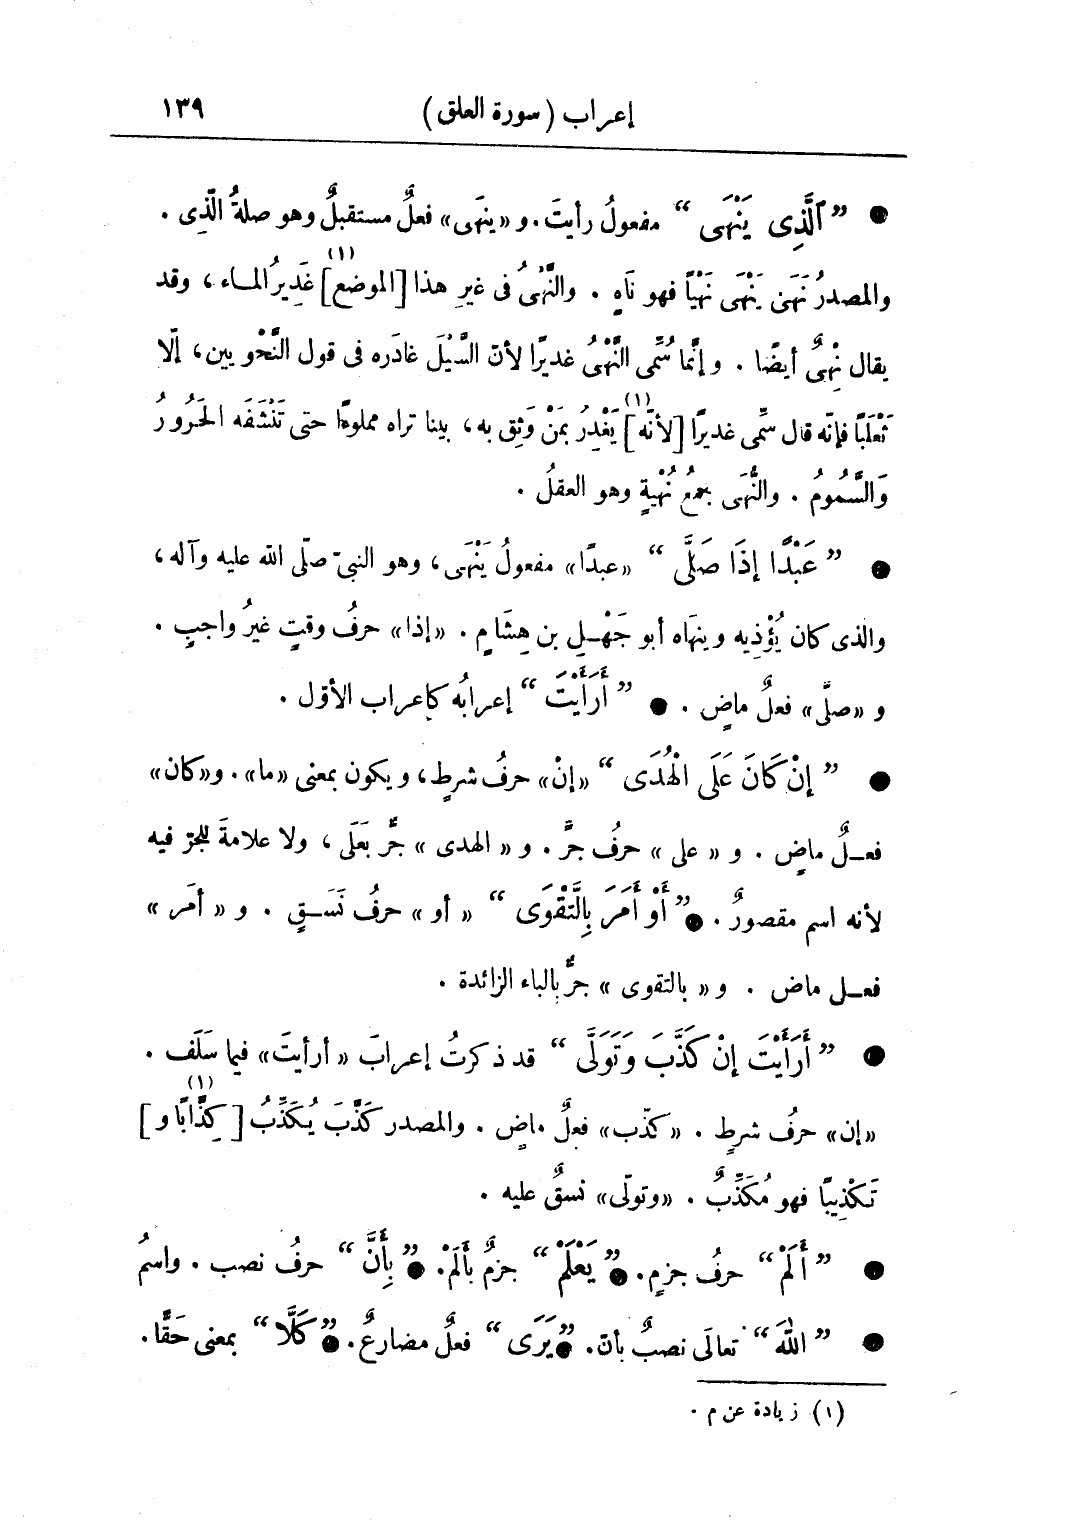 إعراب (سورة العلق) ١٣٩
● ”ٱلَّذِى يَنْهَى“ مفعولُ رأيتَ. و «ينهَى» فعلٌ مستقبلٌ وهو صلةُ الّذِى .
والمصدرُ نَهَىَ يَنْهَى نَهْيًا فهو نَاهٍ . والنَّهْىُ فى غيرِ هذا [الموضع](١) غَدِيرُ المــاء ، وقد
يقال نِهْىٌ أيضًا . وإنَّما سُمِّى النَّهْىُ غديرًا لأنّ السَّيْلَ غادَره فى قول النَّحْويين، إلّا
ثَعْلَبًا فإنّه قال سمِّى غديرًا [لأنّه](١) يَغْدِرُ بمَنْ وَثِق به، بينا تراه مملوءًا حتى تَنْشَفَه الحَرُورُ
وَالسَّمُومُ . والنُّهَى جمعُ نُهْيةٍ وهو العقلُ .
● ” عَبْدًا إذَا صَلَّى “ «عبدًا» مفعولُ يَنْهَى، وهو النبىّ صلّى الله عليه وآله،
والذى كان يُؤْذِيه وينهَاه أبو جَهْـلِ بن هِشَامٍ . «إذا» حرفُ وقتٍ غيرُ واجبٍ .
و «صلَّى» فعلٌ ماضٍ . ● ” أَرَأَيْتَ “ إعرابُه كإعراب الأوّل .
● ” إنْ كَانَ عَلَى الْهُدَى “ «إنْ» حرفُ شرطٍ، ويكون بمعنى «ما». و«كان»
فعــلٌ ماضٍ . و « على » حرفُ جرٍّ . و « الهدى » جرٌّ بعَلَى ، ولا علامةَ للجرّ فيه
لأنه اسم مقصورٌ . ● ” أَوْ أَمَرَ بِالتَّقْوَى “ « أو » حرفُ نَسَــقٍ . و « أمَر »
فعــل ماض . و « بالتقوى » جرٌّ بالباء الزائدة .
● ” أَرَأَيْتَ إنْ كَذَّبَ وَتَوَلَّى “ قد ذكرتُ إعرابَ « أرأيتَ» فيما سَلَف .
«إن» حرفُ شرطٍ . «كذّب» فعلٌ ماضٍ . والمصدر كَذَّبَ يُكَذِّبُ [كِذَّابًا و](١)
تَكْذِيبًا فهو مُكَذِّبٌ . «وتولّى» نسقٌ عليه .
● ” أَلَمْ “ حرفُ جزمٍ. ● ” يَعْلَمْ “ جزمٌ بأَلَمْ. ● ” بِأَنَّ “ حرفُ نصب . واسمُ
● ” اللهَ “ تعالَى نصبٌ بأنّ. ● ”يَرَى “ فعلٌ مضارعٌ. ● ” كَلَّا “ بمعنى حَقًّا.
(١) زيادة عن م .